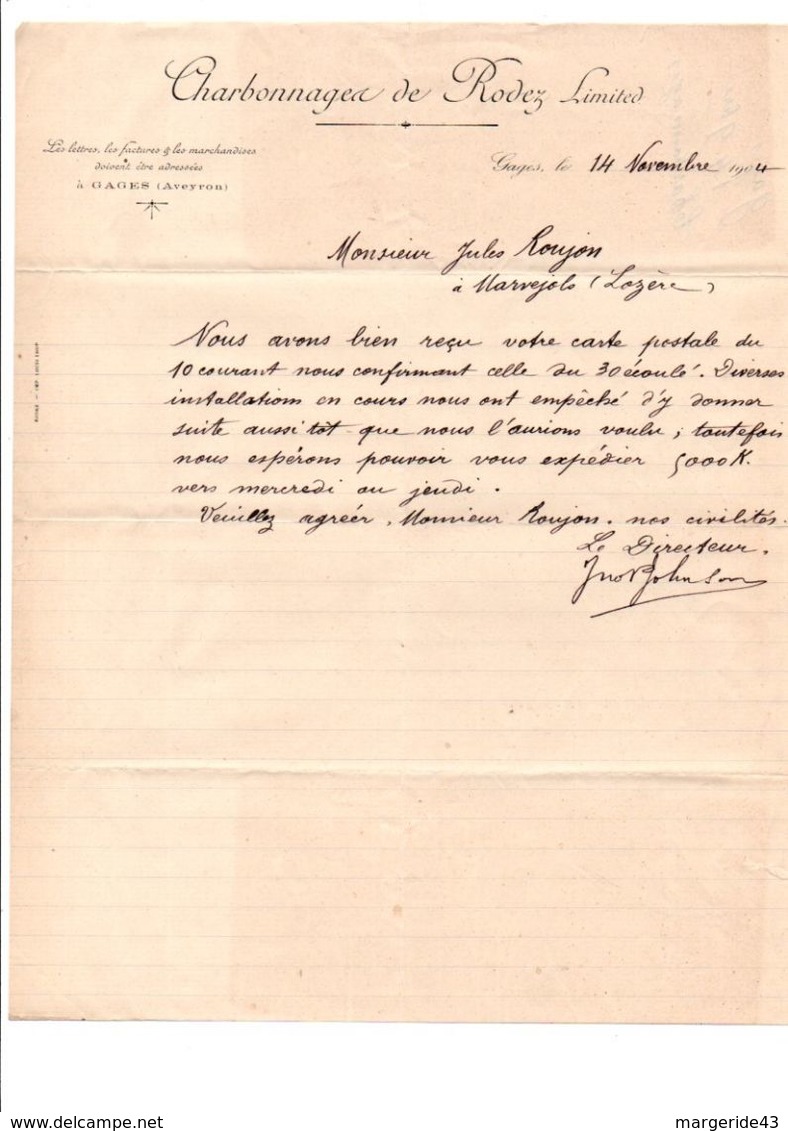 Charbonnages de Rodez Limited
Les lettres, les factures & les marchandises
doivent être adressées
à GAGES (Aveyron)
Gages, le 14 Novembre 1904
Monsieur Jules Roujon
à Marvejols (Lozère)
Nous avons bien reçu votre carte postale du
10 courant nous confirmant celle du 30 écoulé. Diverses
installations en cours nous ont empêché d'y donner
suite aussi tôt que nous l'aurions voulu ; toutefois
nous espérons pouvoir vous expédier 5000 K.
vers mercredi ou jeudi.
Veuillez agréer, Monsieur Roujon, nos civilités.
Le Directeur.
Jno Johnson
margeride43